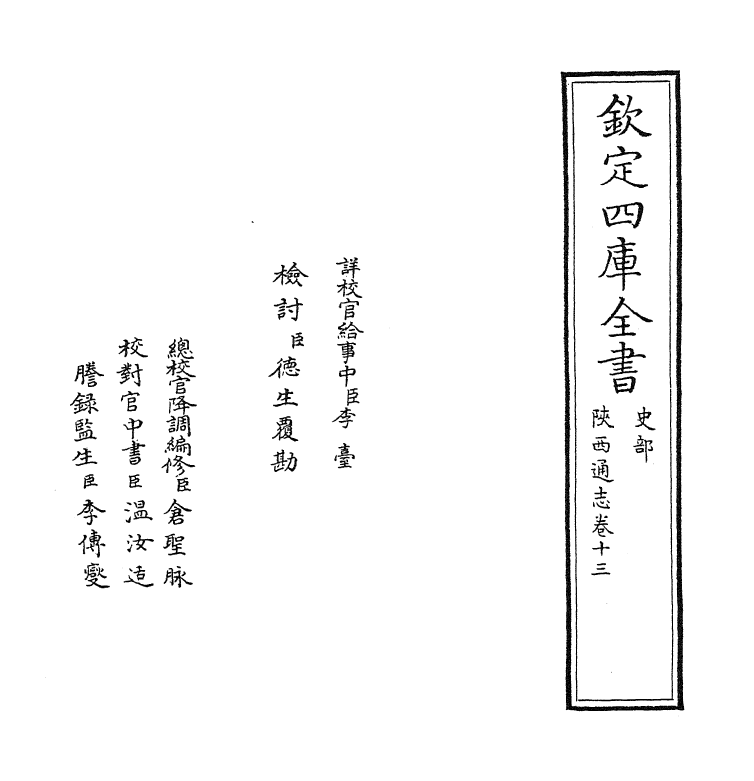 欽定四庫全書
史部
陝西通志卷十三
詳校官給事中臣李臺
檢討臣德生覆勘
總校官降調編修臣倉聖脉
校對官中書臣温汝适
謄錄監生臣李傳夔